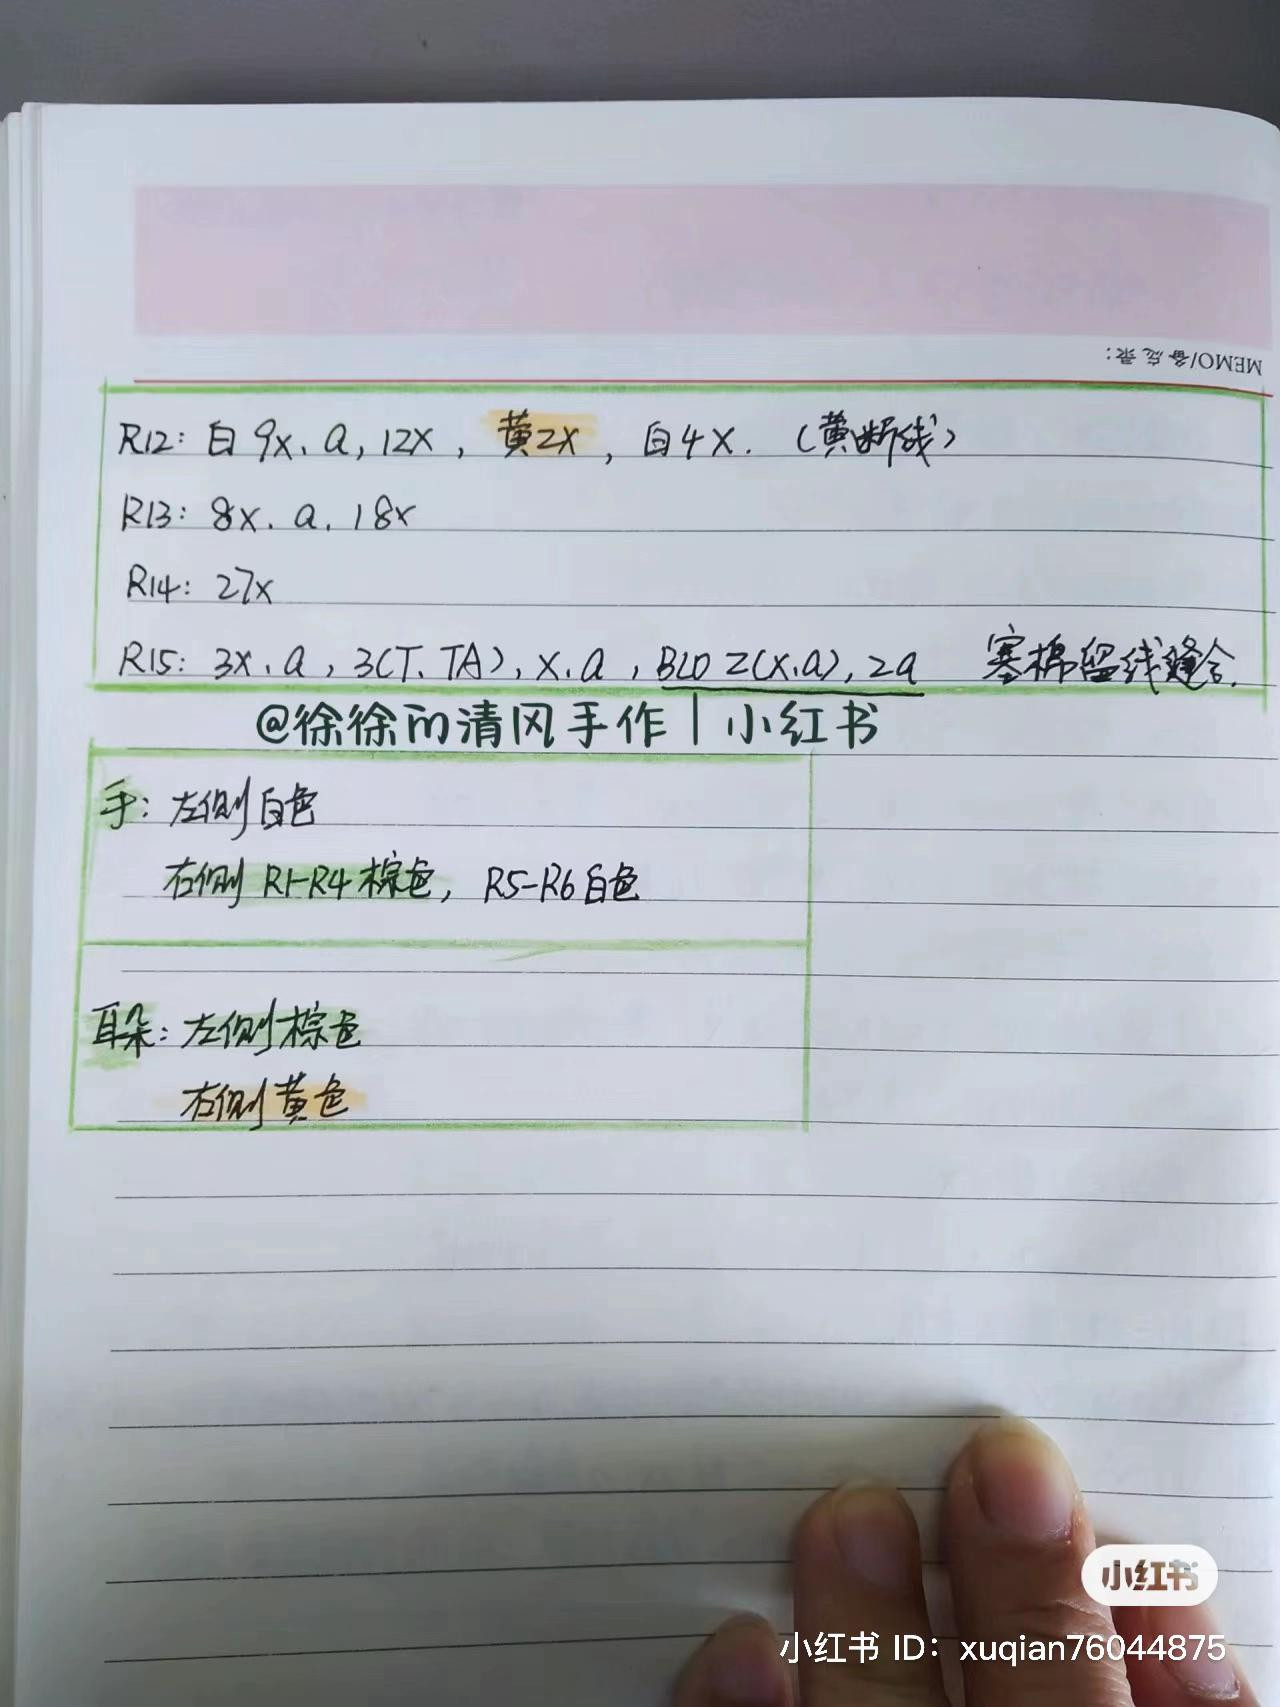 MEMO/备忘录：
R12: 白9X、a, 12X, 黄2X, 白4X. (黄断线)
R13: 8X. a. 18X
R14: 27X
R15: 3X. a, 3(T. TA), X. a, BLO 2(X.a), 2a 塞棉留线缝合.
@徐徐的清风手作 | 小红书
手: 左侧白色
右侧 R1-R4 棕色, R5-R6 白色
耳朵: 左侧棕色
右侧黄色
小红书
小红书 ID: xuqian76044875